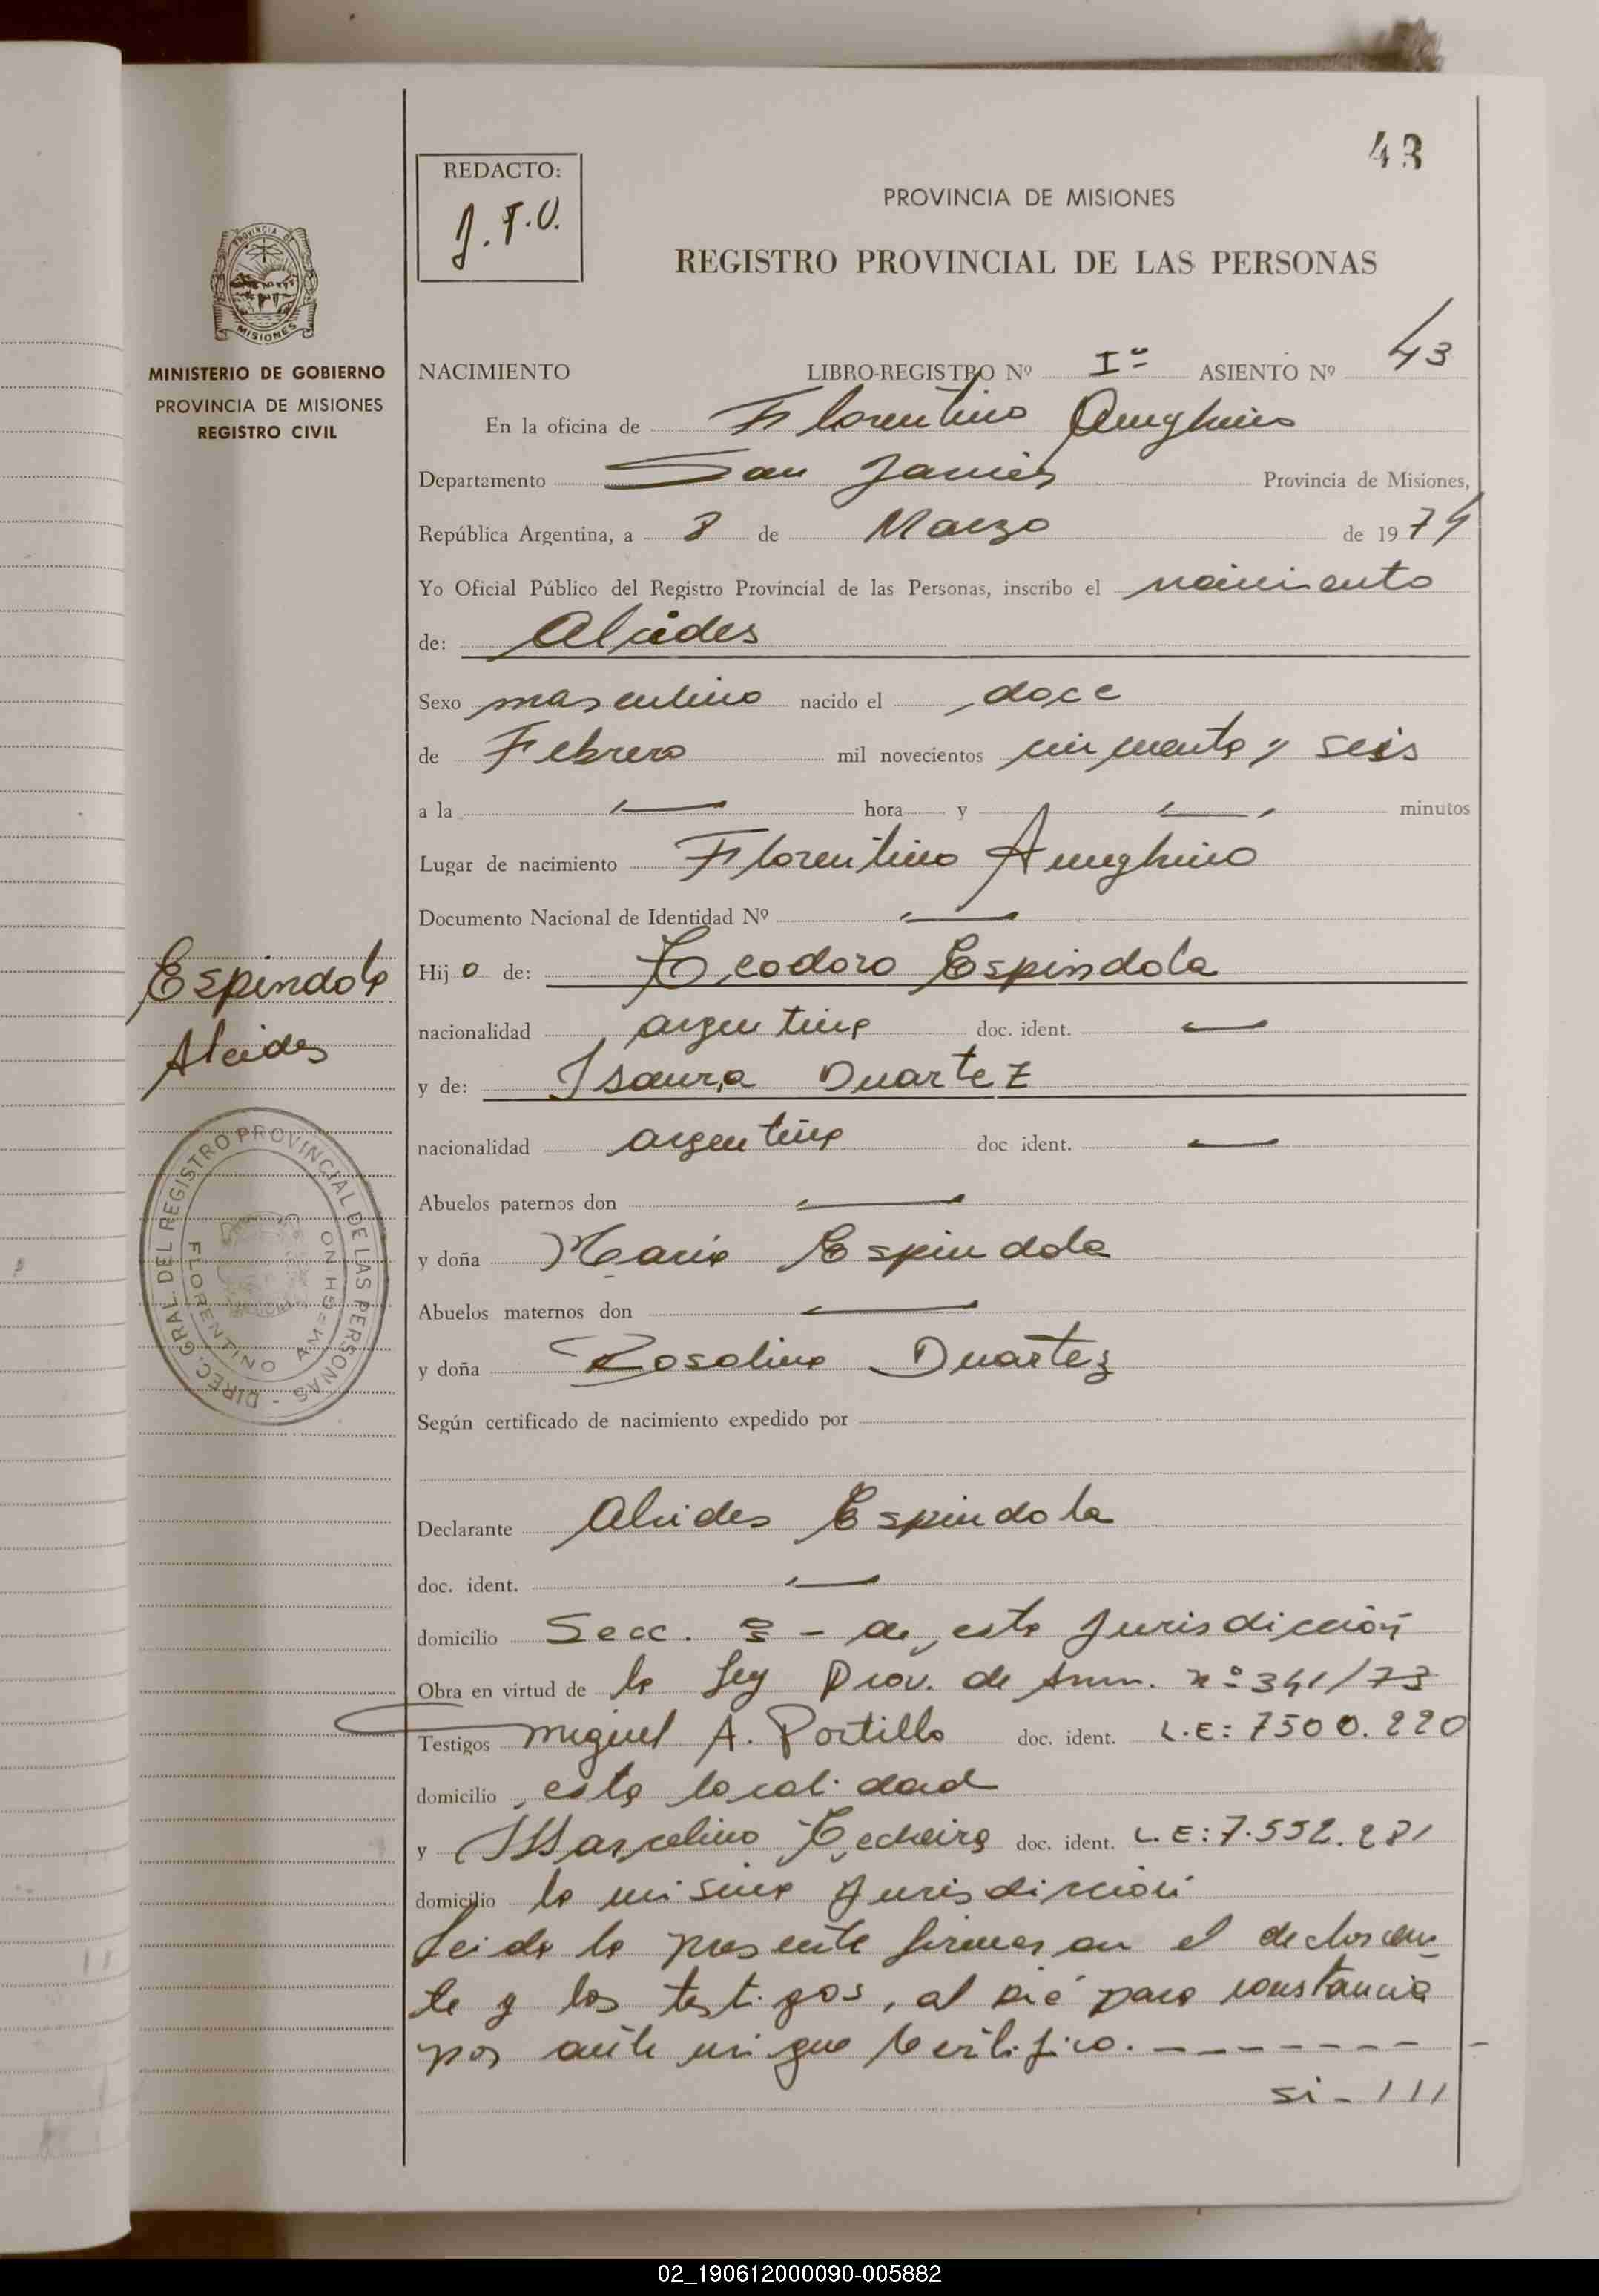 43
REDACTO:
J. F. V.
PROVINCIA DE MISIONES
REGISTRO PROVINCIAL DE LAS PERSONAS
PROVINCIA DE
MISIONES
MINISTERIO DE GOBIERNO
PROVINCIA DE MISIONES
REGISTRO CIVIL
NACIMIENTO LIBRO-REGISTRO Nº Iº ASIENTO Nº 43
En la oficina de Florentino Ameghino
Departamento San Javier Provincia de Misiones,
República Argentina, a 8 de Marzo de 1974
Yo Oficial Público del Registro Provincial de las Personas, inscribo el nacimiento
de: Alcides
Sexo masculino nacido el doce
de Febrero mil novecientos cincuenta y seis
a la — hora y — minutos
Lugar de nacimiento Florentino Ameghino
Documento Nacional de Identidad Nº —
Hijo de: Teodoro Espindola
nacionalidad argentina doc. ident. —
y de: Isaura Duartez
nacionalidad argentina doc ident. —
Abuelos paternos don —
y doña Maria Espindola
Abuelos maternos don —
y doña Rosalina Duartez
Según certificado de nacimiento expedido por
Declarante Alcides Espindola
doc. ident. —
domicilio Secc. — de esta Jurisdicción
Obra en virtud de la Ley Prov. de Amn. nº 341/73
Testigos Miguel A. Portillo doc. ident. L.E: 7500.220
domicilio esta localidad
y Marcelino Techeira doc. ident. L.E: 7.552.281
domicilio la misma Jurisdicción
Leida la presente firman en el declaran
te y los testigos, al pié para constancia
por ante mi que certifico. - - - - - - - -
si - 111
Espindola
Alcides
DIREC. GRAL. DEL REGISTRO PROVINCIAL DE LAS PERSONAS -
FLORENTINO AMEGHINO
02_190612000090-005882